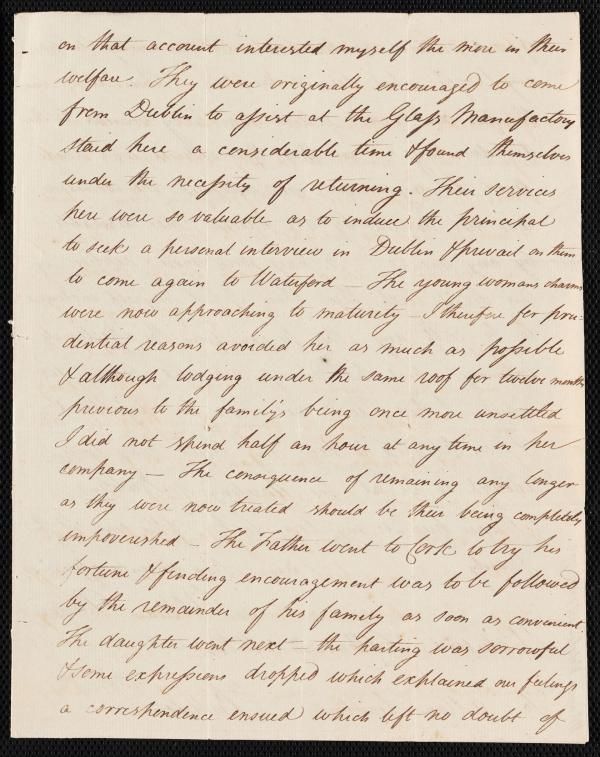 on that account interested myself the more in their
welfare. They were originally encouraged to come
from Dublin to assist at the Glass Manufactory
staid here a considerable time & found themselves
under the necessity of returning. Their services
here were so valuable as to induce the principal
to seek a personal interview in Dublin & prevail on them
to come again to Waterford — The young womans charms
were now approaching to maturity — I therefore for pru-
dential reasons avoided her as much as possible
& although lodging under the same roof for twelve months
previous to the family's being once more unsettled
I did not spend half an hour at any time in her
company — The consequence of remaining any longer
as they were now treated should be their being completely
impoverished — The Father went to Cork to try his
fortune & finding encouragement was to be followed
by the remainder of his family as soon as convenient.
The daughter went next — the parting was sorrowful
& some expressions dropped which explained our feelings
a correspondence ensued which left no doubt of